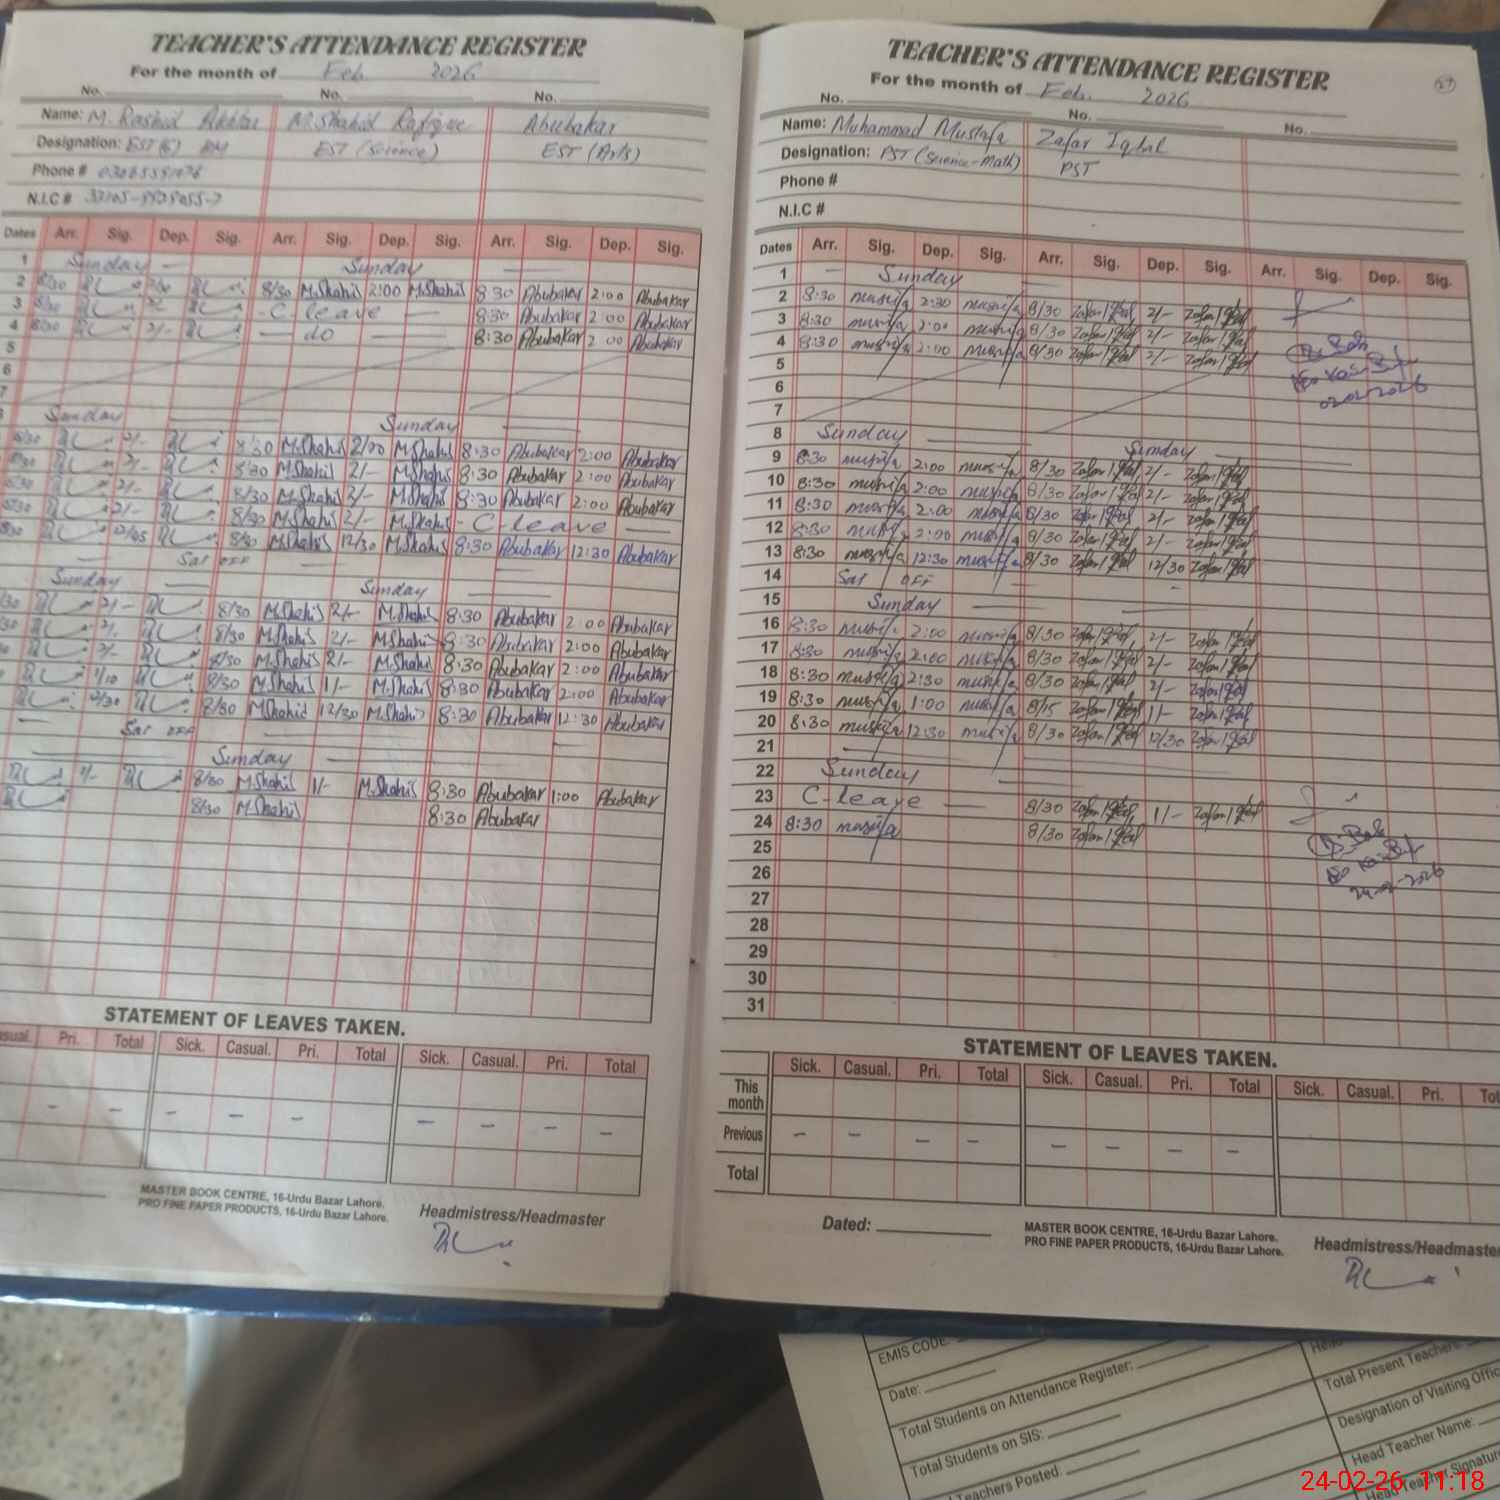 TEACHER'S ATTENDANCE REGISTER
For the month of Feb. 2026
No. No. No.
Name: M. Rashid Akhtar M. Shahid Rafique Abubakar
Designation: EST (Science) EST (Arts)
Phone #
N.I.C #
Dates Arr. Sig. Dep. Sig. Arr. Sig. Dep. Sig. Arr. Sig. Dep. Sig.
1 Sunday Sunday
2 8/30 8/30 M.Shahid 2:00 M.Shahid 8:30 Abubakar 2:00 Abubakar
3 8/30 C leave 8:30 Abubakar 2:00 Abubakar
4 8/30 2/- do 8:30 Abubakar 2:00 Abubakar
5
6
7
Sunday Sunday
8/30 2/- 8/30 M.Shahid 2/00 M.Shahid 8:30 Abubakar 2:00 Abubakar
8/30 2/- 8/30 M.Shahid 2/- M.Shahid 8:30 Abubakar 2:00 Abubakar
8/30 2/- 8/30 M.Shahid 2/- M.Shahid 8:30 Abubakar 2:00 Abubakar
8/30 2/- 8/30 M.Shahid 2/- M.Shahid C leave
8/30 M.Shahid 12/30 M.Shahid 8:30 Abubakar 12:30 Abubakar
Sat OFF
Sunday Sunday
2/- 8/30 M.Shahid 2/- M.Shahid 8:30 Abubakar 2:00 Abubakar
2/- 8/30 M.Shahid 2/- M.Shahid 8:30 Abubakar 2:00 Abubakar
2/- 8/30 M.Shahid 2/- M.Shahid 8:30 Abubakar 2:00 Abubakar
1/10 8/30 M.Shahid 1/- M.Shahid 8:30 Abubakar 2:00 Abubakar
12/30 8/30 M.Shahid 12/30 M.Shahid 8:30 Abubakar 12:30 Abubakar
Sat OFF
Sunday
1/- 8/30 M.Shahid 1/- M.Shahid 8:30 Abubakar 1:00 Abubakar
8/30 M.Shahid 8:30 Abubakar
STATEMENT OF LEAVES TAKEN.
Pri. Total Sick. Casual. Pri. Total Sick. Casual. Pri. Total
MASTER BOOK CENTRE, 16-Urdu Bazar Lahore.
PRO FINE PAPER PRODUCTS, 16-Urdu Bazar Lahore.
Headmistress/Headmaster
TEACHER'S ATTENDANCE REGISTER
For the month of Feb. 2026
No. No. No.
Name: Muhammad Mustafa Zafar Iqbal
Designation: PST (Science-Math) PST
Phone #
N.I.C #
Dates Arr. Sig. Dep. Sig. Arr. Sig. Dep. Sig. Arr. Sig. Dep. Sig.
1 Sunday
2 8:30 Mustafa 2:30 Mustafa 8/30 Zafar Iqbal 2/- Zafar Iqbal
3 8:30 Mustafa 2:00 Mustafa 8/30 Zafar Iqbal 2/- Zafar Iqbal
4 8:30 Mustafa 2:00 Mustafa 8/30 Zafar Iqbal 2/- Zafar Iqbal
5
6
7
8 Sunday Sunday
9 8:30 Mustafa 2:00 Mustafa 8/30 Zafar Iqbal 2/- Zafar Iqbal
10 8:30 Mustafa 2:00 Mustafa 8/30 Zafar Iqbal 2/- Zafar Iqbal
11 8:30 Mustafa 2:00 Mustafa 8/30 Zafar Iqbal 2/- Zafar Iqbal
12 8:30 Mustafa 2:00 Mustafa 8/30 Zafar Iqbal 2/- Zafar Iqbal
13 8:30 Mustafa 12:30 Mustafa 8/30 Zafar Iqbal 12/30 Zafar Iqbal
14 Sat OFF
15 Sunday
16 8:30 Mustafa 2:00 Mustafa 8/30 Zafar Iqbal 2/- Zafar Iqbal
17 8:30 Mustafa 2:00 Mustafa 8/30 Zafar Iqbal 2/- Zafar Iqbal
18 8:30 Mustafa 2:30 Mustafa 8/30 Zafar Iqbal 2/- Zafar Iqbal
19 8:30 Mustafa 1:00 Mustafa 8/15 Zafar Iqbal 1/- Zafar Iqbal
20 8:30 Mustafa 12:30 Mustafa 8/30 Zafar Iqbal 12/30 Zafar Iqbal
21
22 Sunday
23 C-leave 8/30 Zafar Iqbal 1/- Zafar Iqbal
24 8:30 Mustafa 8/30 Zafar Iqbal
25
24-2-2026
26
27
28
29
30
31
STATEMENT OF LEAVES TAKEN.
Sick. Casual. Pri. Total Sick. Casual. Pri. Total Sick. Casual. Pri.
This month
Previous
Total
Dated:
MASTER BOOK CENTRE, 16-Urdu Bazar Lahore.
PRO FINE PAPER PRODUCTS, 16-Urdu Bazar Lahore.
Headmistress/Headmaster
EMIS CODE
Date:
Total Students on Attendance Register:
Total Students on SIS:
Teachers Posted:
Total Present Teachers:
Designation of Visiting Offic
Head Teacher Name:
Head Teacher Signature
24-02-26 11:18